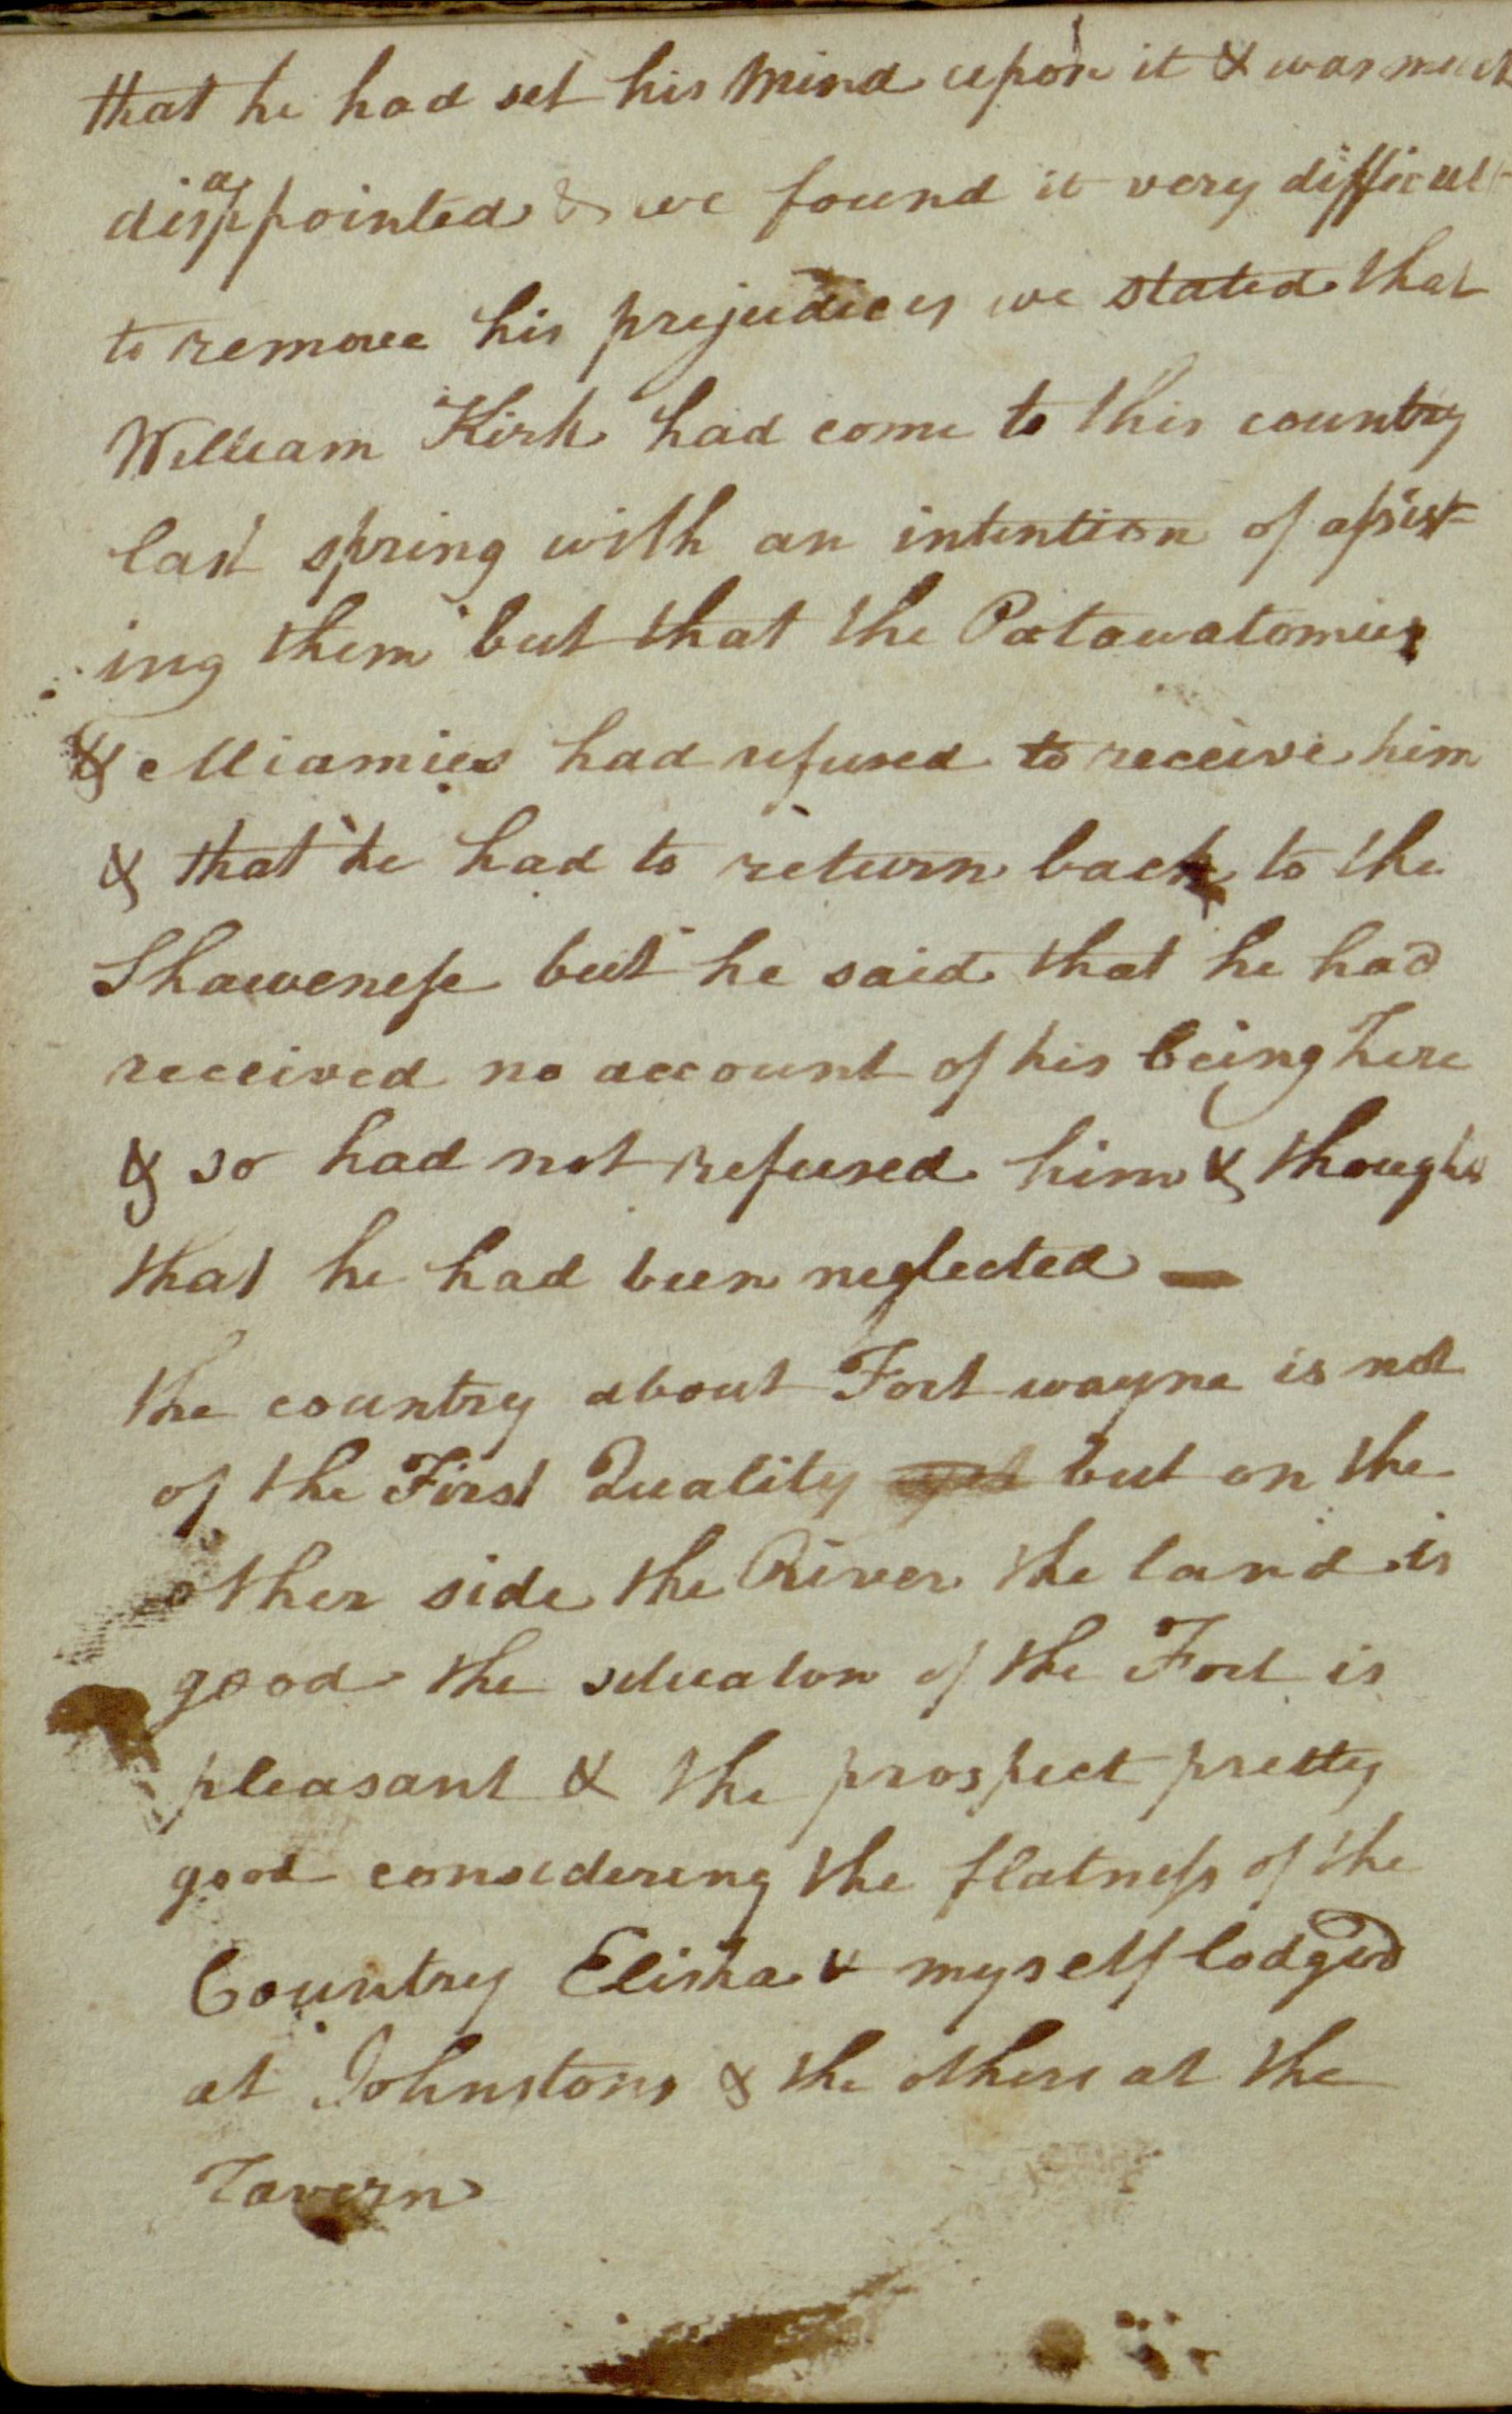 that he had set his Mind upon it & was much
disappointed & we found it very difficult
to remove his prejudices we stated that
William Kirk had come to this country
last spring with an intention of assist-
ing them but that the Patawatomies
& Miamies had refused to receive him
& that he had to return back to the
Shawenese but he said that he had
received no account of his being here
& so had not refused him & thought
that he had been neglected —
the country about Fort wayne is not
of the First Quality but on the
other side the River the land is
good the situaton of the Fort is
pleasant & the prospect pretty
good considering the flatness of the
Country Elisha & myself lodged
at Johnstons & the others at the
Tavern